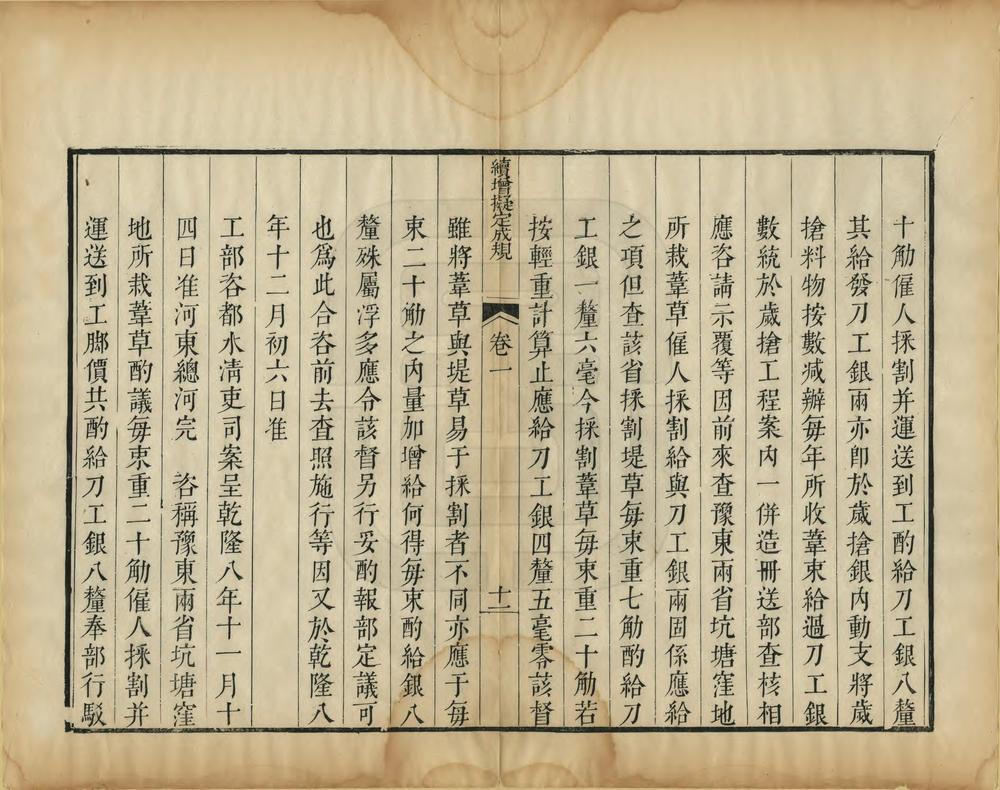 十觔僱人採割并運送到工酌給刀工銀八釐
其給發刀工銀兩亦卽於歲搶銀內動支將歲
搶料物按數减辦每年所收葦束給過刀工銀
數統於歲搶工程案內一併造冊送部查核相
應咨請示覆等因前來查豫東兩省坑塘窪地
所栽葦草僱人採割給與刀工銀兩固係應給
之項但查該省採割堤草每束重七觔酌給刀
工銀一釐六毫今採割葦草每束重二十觔若
按輕重計算止應給刀工銀四釐五毫零該督
續增擬定成規
卷一
十二
雖將葦草與堤草易于採割者不同亦應于每
束二十觔之內量加增給何得每束酌給銀八
釐殊屬浮多應令該督另行妥酌報部定議可
也爲此合咨前去查照施行等因又於乾隆八
年十二月初六日准
工部咨都水淸吏司案呈乾隆八年十一月十
四日准河東總河完 咨稱豫東兩省坑塘窪
地所栽葦草酌議每束重二十觔僱人採割并
運送到工脚價共酌給刀工銀八釐奉部行駁